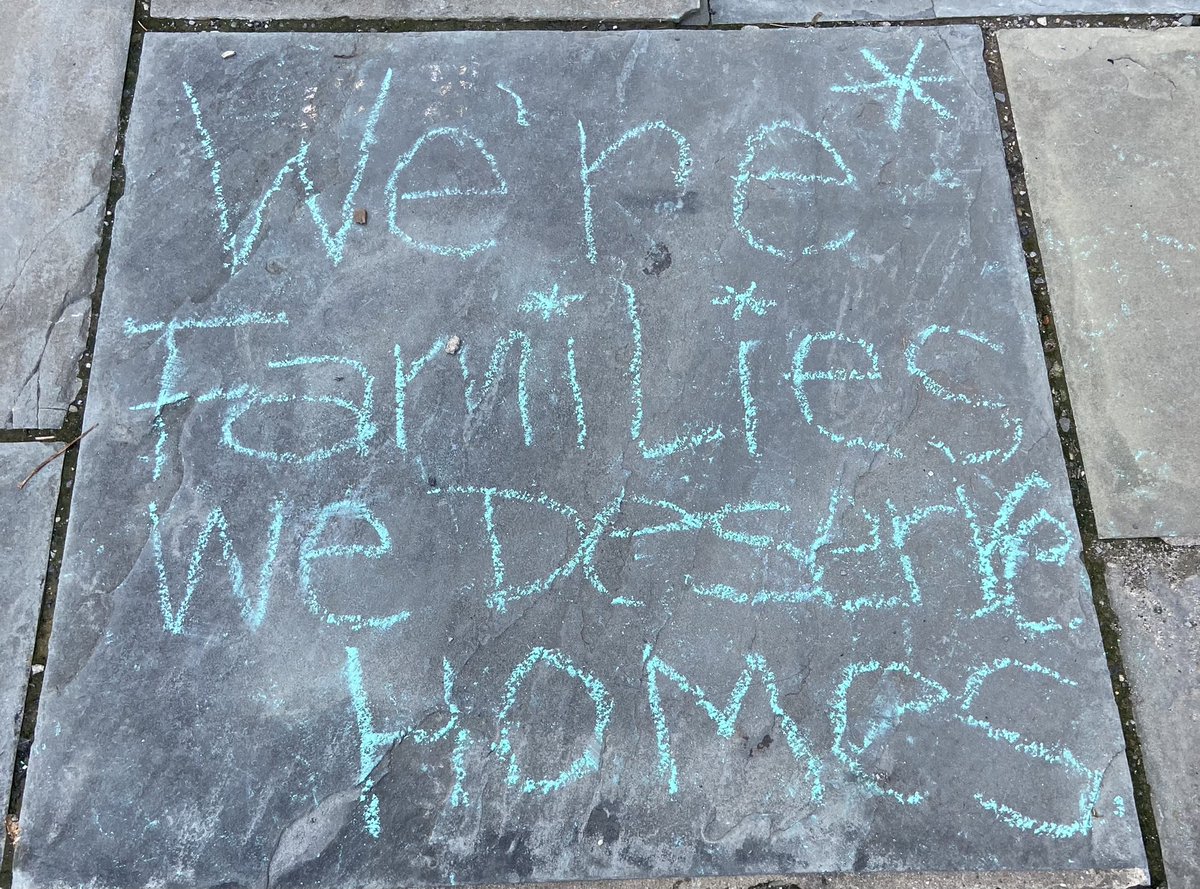 We're *
FamiLies
We Deserve
HOMes